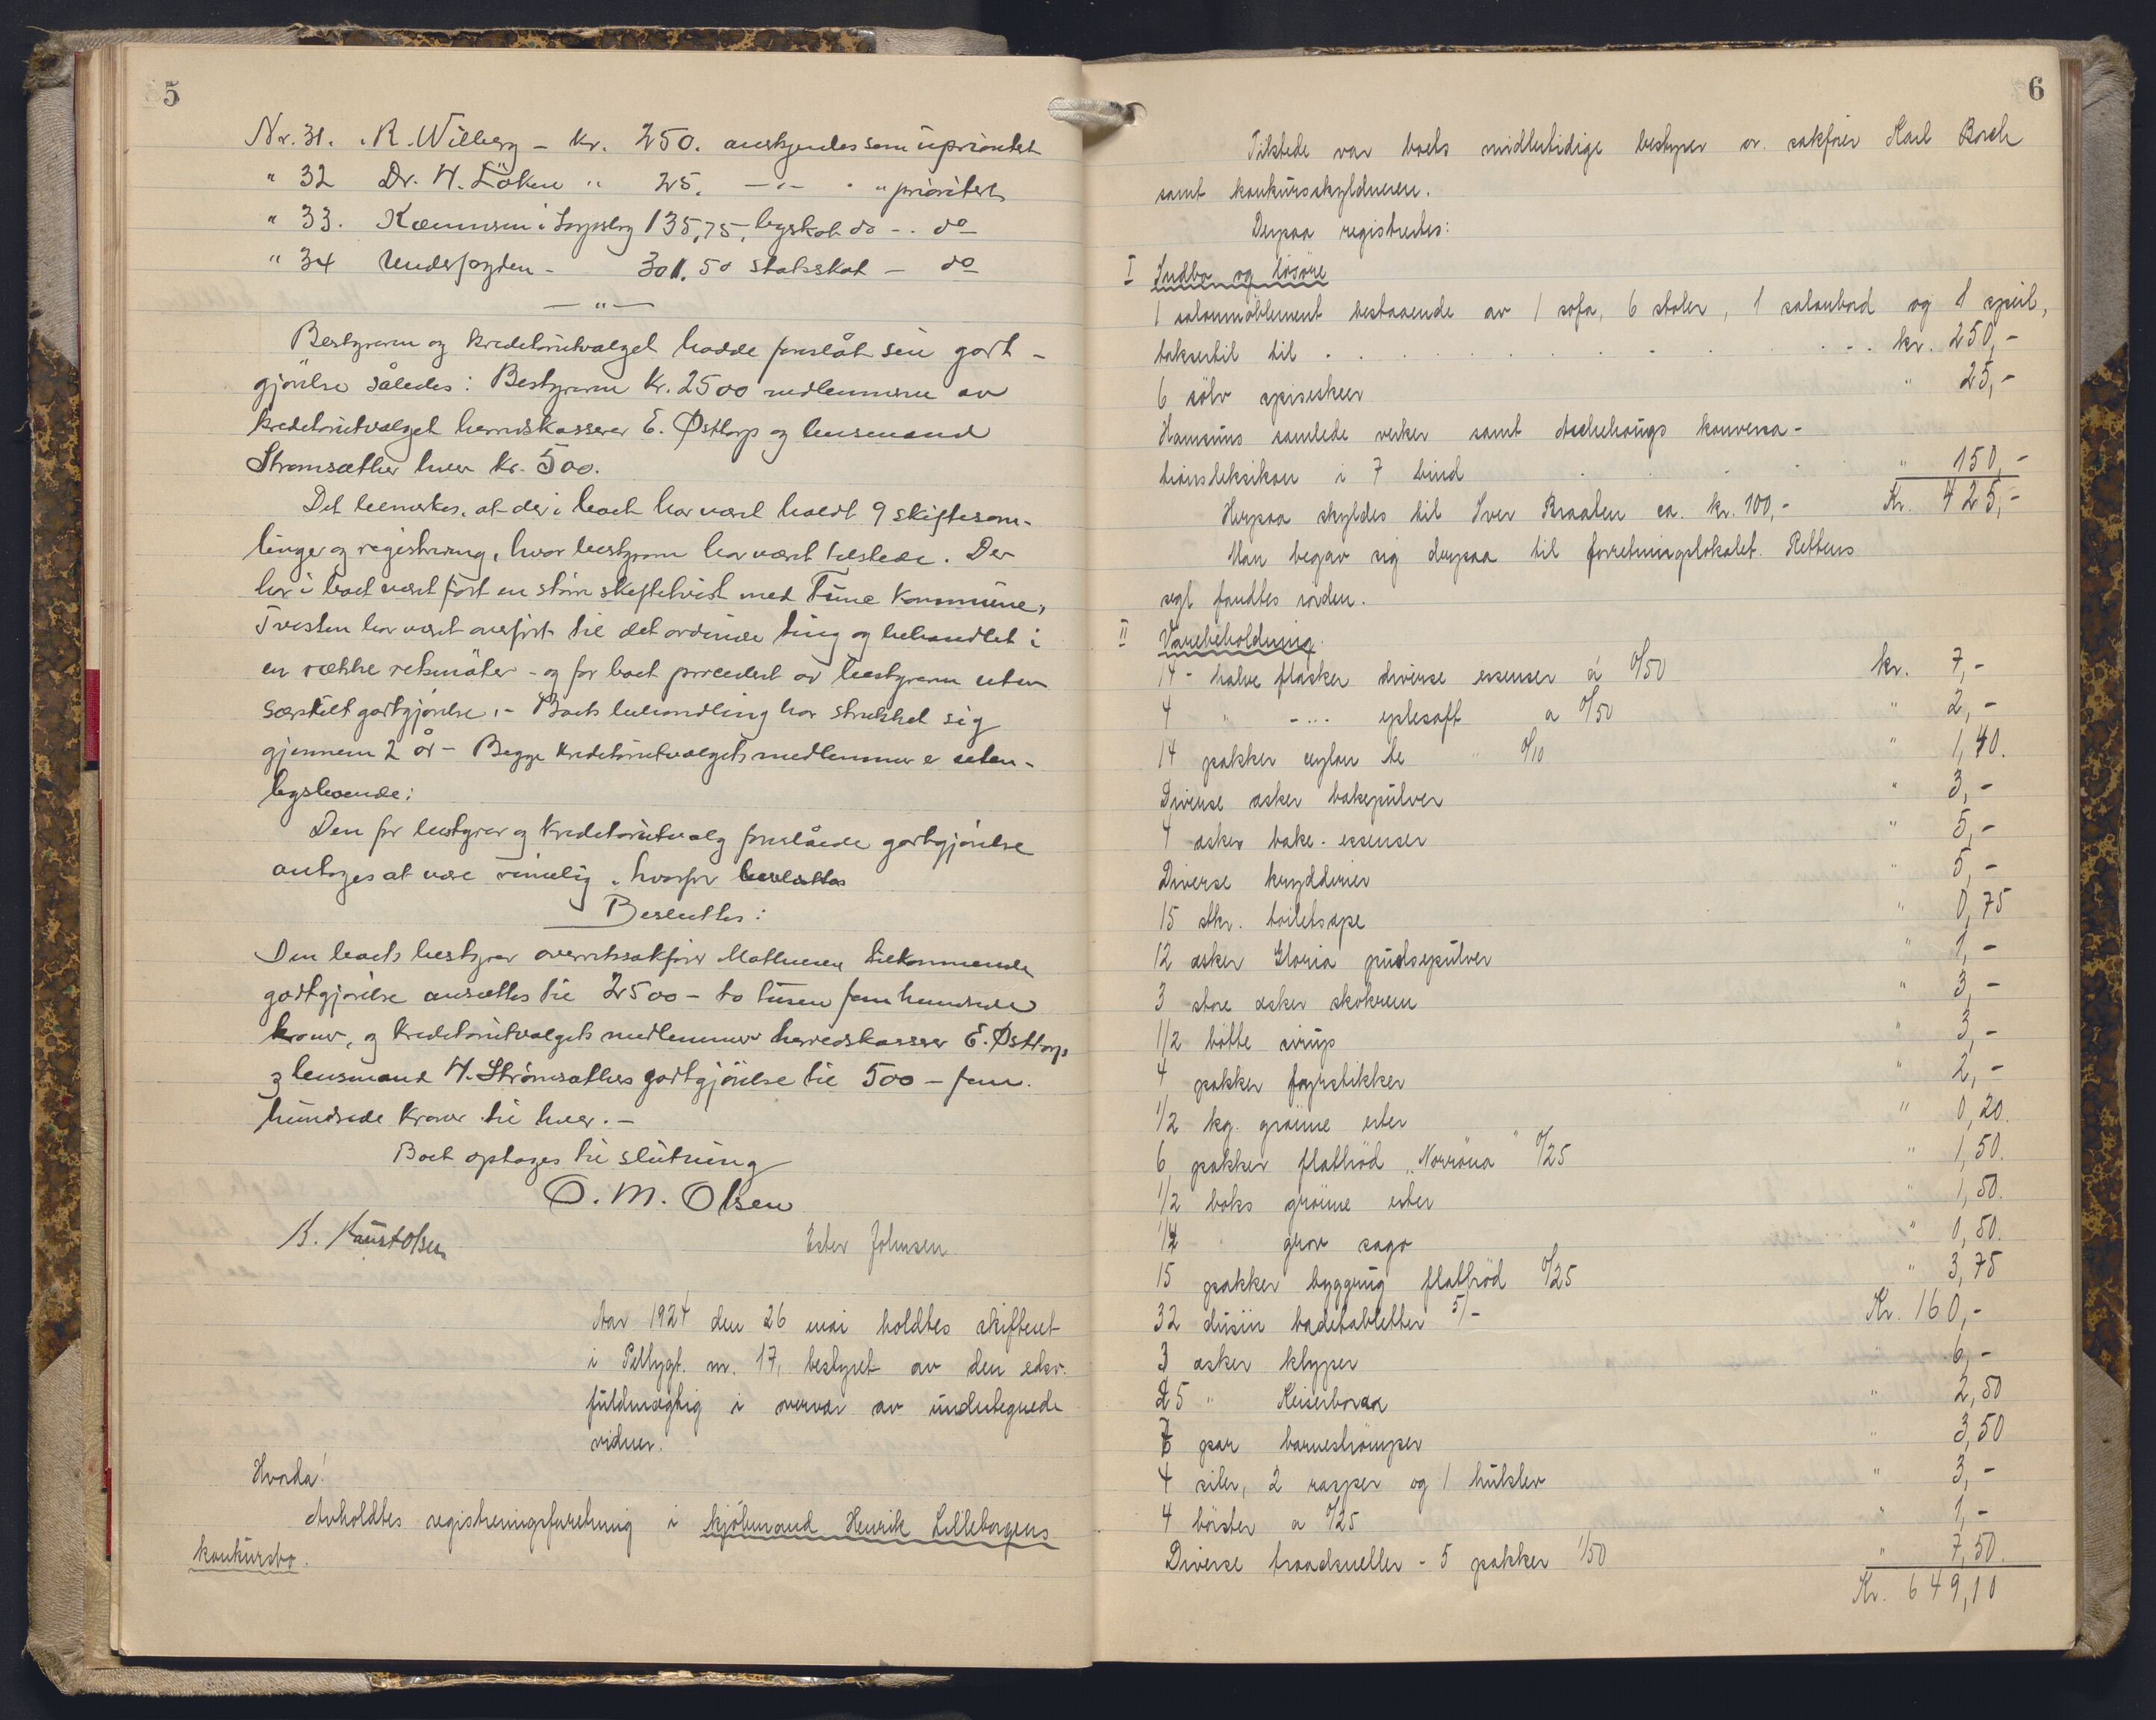 5
Nr. 31. R. Wilberg - kr. 250. anerkjendes som uprioritet
" 32 Dr. H. Löken " 25. -"- " prioritert
" 33. Kæmneren i Sarpsborg 135,75, byskat do - do
" 34 Underfogden - 301.50 statsskat - do
-"-
Bestyreren og kreditorutvalget hadde foreslåt sin godt-
gjörelse således: Bestyreren kr. 2500 medlemmerne av
kreditorutvalget herredskasserer E. Østtorp og lensmand
Strømsæther hver kr. 500.
Det bemerkes, at der i boet har været holdt 9 skiftesam-
linger og registrering, hvor bestyreren har været tilstede. Der
har i boet været fört en större skiftetvist med Tune kommune,
Tvisten har været overfört til det ordinære ting og behandlet i
en række retsmöter - og for boet procedert av bestyreren uten
særskilt godtgjörelse. - Boets behandling har strukket sig
gjennem 2 år - Begge kreditorutvalgets medlemmer er uten-
bysboende:
Den for bestyrer og kreditorutvalg foreslåede godtgjörelse
antages at være rimelig, hvorfor besluttes
Besluttes:
Den boets bestyrer overretssakförer Mathiesen tilkommende
godtgjörelse ansættes til 2500 - to tusen fem hundrede
kroner, og kreditorutvalgets medlemmer herredskasserer E. Østtorps
og lensmand H. Strömsæthers godtgjörelse til 500 - fem
hundrede kroner til hver. -
Boet optages til slutning
O. M. Olsen
B. Knustolsen Ester Johnsen
Aar 1924 den 26 mai holdtes skifteret
i Pellygt. nr. 17, bestyret av den edsv.
fuldmægtig i overvær av undertegnede
vidner.
Hvorda!
Avholdtes registreringsforretning i kjöbmand Henrik Lilleborgens
konkursbo.
6
Tilstede var boets midlertidige bestyrer or. sakförer Karl Bosch
samt konkursskyldneren.
Derpaa registrertes:
I Indbo og lösöre
1 salonmöblement bestaaende av 1 sofa, 6 stoler, 1 salonbord og 1 speil,
taksertil til . . . kr. 250,-
6 sölv spiseskeer " 25,-
Hamsuns samlede verker samt Aschehougs konversa-
tionsleksikon i 7 bind " 150,-
Herpaa skyldes til Iver Braaten ca. kr. 100,- Kr. 425,-
Man begav sig derpaa til forretningslokalet. Rettens
segl fandtes iorden.
II Varebeholdning.
14 - halve flasker diverse essenser á 0/50 kr. 7,-
4 " -"- eplesaft a 0/50 " 2,-
14 pakker ceylon te " 0/10 " 1,40.
Diverse æsker bakepulver " 3,-
4 æsker bake-essenser " 5,-
Diverse krydderier " 5,-
15 stkr. toiletsæpe " 0,75
12 æsker Gloria pudsepulver " 1,-
3 store æsker skokrem " 3,-
1/2 bötte sirup " 3,-
4 pakker fyrstikker " 2,-
1/2 kg. gröinne erter " 0,20.
6 pakker flatbröd "Norröna" 0/25 " 1,50.
1/2 boks gröinne erter " 1,50.
1/4 " grov sago " 0,50.
15 pakker byggmig flatbröd 0/25 " 3,75
32 dusin badetabletter 5/- Kr. 160,-
3 æsker klyper " 6,-
25 " Keiserborax " 2,50
7 par barneströmper " 3,50
4 siler, 2 rasper og 1 hulslev " 3,-
4 börster a 0/25 " 1,-
Diverse traadsneller - 5 pakker 1/50 " 7,50.
Kr. 649,10